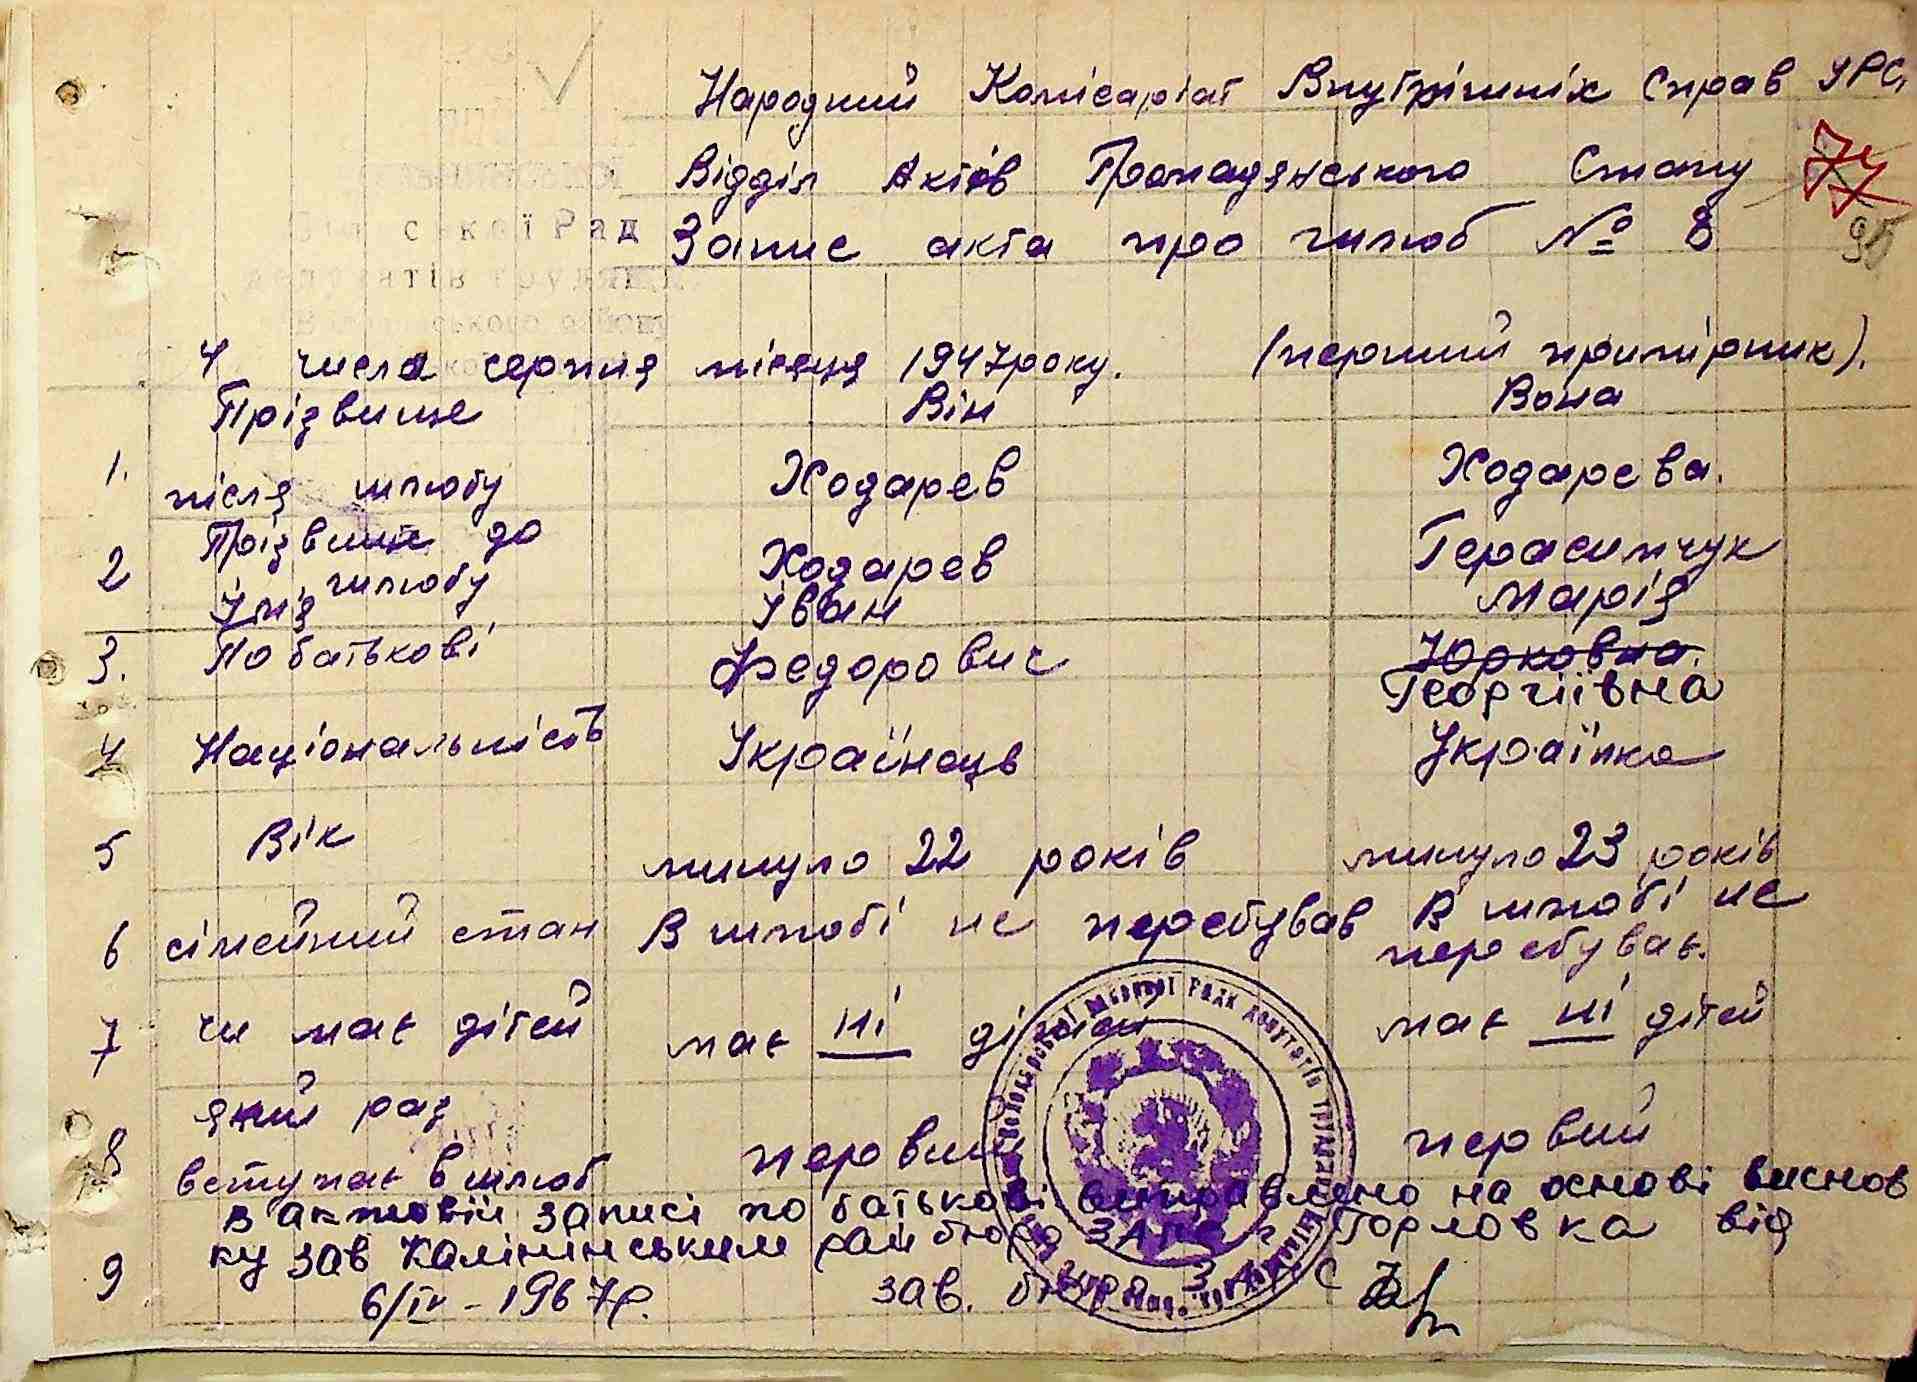 Народний Комісаріат Внутрішніх Справ УРС
Відділ Актів Громадянського Стану 74
Запис акта про шлюб № 8
ської Рад
депутатів трудящих
4 числа серпня місяця 1947 року. (перший примірник).
Прізвище Він Вона
1. після шлюбу Ходарев Ходарева.
Прізвище до
2 шлюбу Ходарев Герасимчук
Імя Іван Марія
3. По батькові Федорович Юрковна.
Георгіївна
4 Національність Українець Українка
5 Вік минуло 22 років минуло 23 років
6 сімейний стан В шлюбі не перебував В шлюбі не
перебувае.
7 чи має дітей має ні дітей має ні дітей
який раз
8 вступає в шлюб первий первий
в актовій записі по батькові виправлено на основі виснов
9 ку зав Калінінським райбюро ЗАГС г Горловка від
6/IV - 1967р. зав. бюро ЗАГС